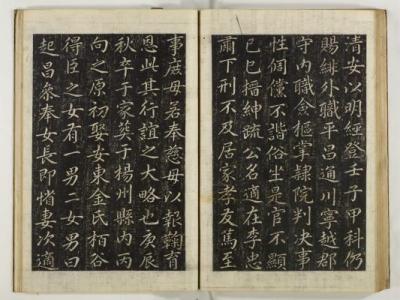 清安以明經登壬子甲科仍
賜緋外職平昌通川寧越郡
守内職僉樞掌隸院判決事
性倜儻不諧俗坐是官不顯
已巳搢紳疏公名適在李忠
肅丁刑不及居家孝友篤至
事庶母若奉慈母以報鞠育
恩此其行誼之大略也庚辰
秋卒于家葬于楊州縣内丙
向之原初聚女東金氏栢谷
得臣之女有一男二女男曰
起昌叅奉女長即惰妻次適